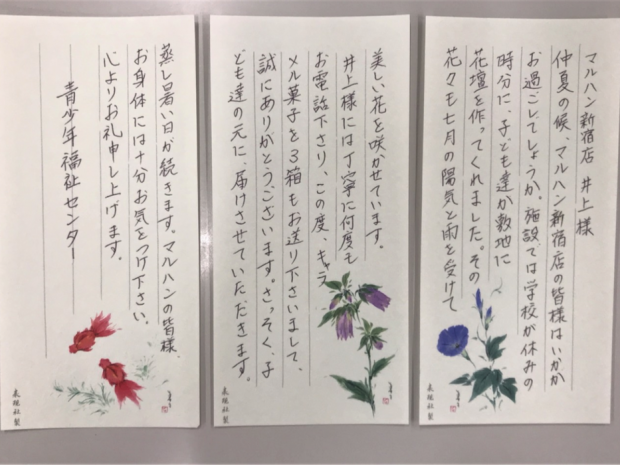 マルハン新宿店 井上様
仲夏の候、マルハン新宿店の皆様はいかが
お過ごしでしょうか。施設では学校が休みの
時分に、子ども達が敷地に
花壇を作ってくれました。その
花々も七月の陽気と雨を受けて
美しい花を咲かせています。
井上様には丁寧に何度も
お電話下さり、この度、キャラ
メル菓子を3箱もお送り下さいまして、
誠にありがとうございます。さっそく、子
ども達の元に、届けさせていただきます。
蒸し暑い日が続きます。マルハンの皆様、
お身体には十分お気をつけ下さい。
心よりお礼申し上げます。
青少年福祉センター